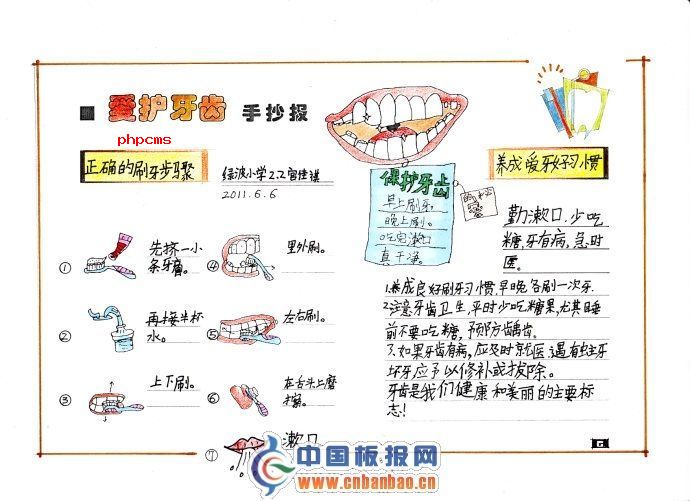 爱护牙齿 手抄报
phpcms
正确的刷牙步骤
绿波小学2.2
2011.6.6
① 先挤一小
条牙膏。
② 再接半杯
水。
③ 上下刷。
④ 里外刷。
⑤ 左右刷。
⑥ 在舌头上磨
擦。
⑦ 漱口
保护牙齿
早上刷牙。
晚上刷。
吃完漱口
真干净。
养成爱牙好习惯
勤漱口.少吃
糖,牙有病,急时
医。
1.养成良好刷牙习惯,早晚各刷一次牙.
2.注意牙齿卫生,平时少吃糖果,尤其睡
前不要吃糖,预防龋齿.
3.如果牙齿有病,应及时就医 遇有蛀牙
坏牙应予以修补或拔除。
牙齿是我们健康和美丽的主要标
志!
中国板报网
www.cnbanbao.cn